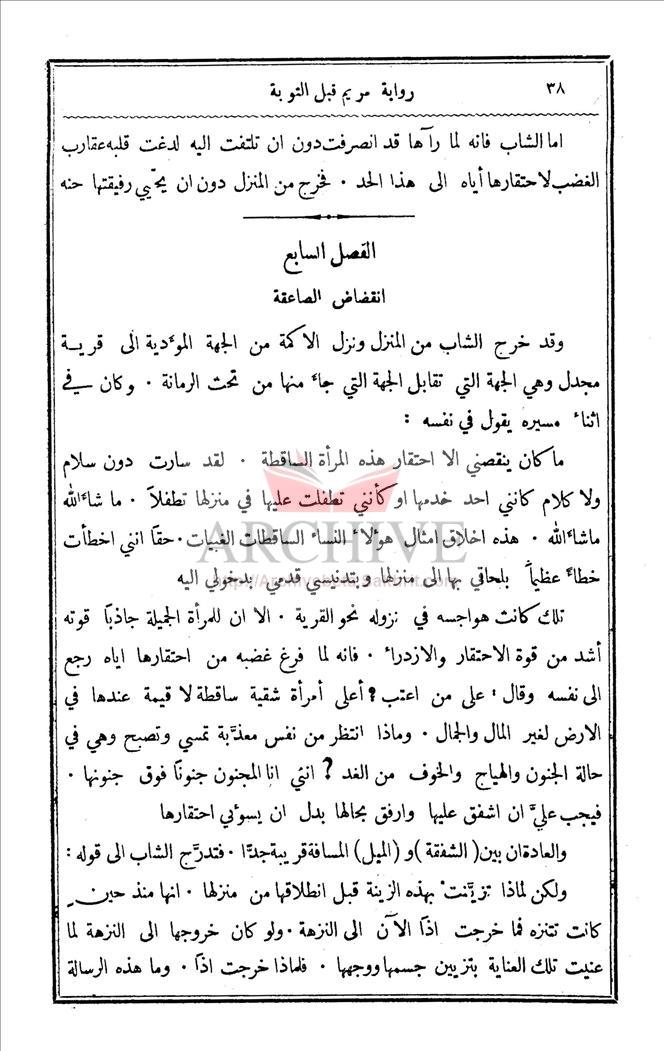 ٣٨
رواية مريم قبل التوبة
اما الشاب فانه لما رآها قد انصرفت دون ان تلتفت اليه لدغت قلبه عقارب
الغضب لاحتقارها أياه الى هذا الحد . فخرج من المنزل دون ان يحيّي رفيقتها حنه
الفصل السابع
انقضاض الصاعقة
وقد خرج الشاب من المنزل ونزل الاكمة من الجهة المؤدية الى قرية
مجدل وهي الجهة التي تقابل الجهة التي جاء منها من تحت الرمانة . وكان في
اثناء مسيره يقول في نفسه :
ما كان ينقصني الا احتقار هذه المرأة الساقطة . لقد سارت دون سلام
ولا كلام كانني احد خدمها او كأنني تطفلت عليها في منزلها تطفلاً . ما شاء الله
ماشاء الله . هذه اخلاق امثال هؤلاء النساء الساقطات الغبيات . حقا انني اخطأت
خطاء عظياً بلحاقي بها الى منزلها وبتدنيسي قدمي بدخولي اليه
تلك كانت هواجسه في نزوله نحو القرية . الا ان للمرأة الجميلة جاذبا قوته
أشد من قوة الاحتقار والازدراء . فانه لما فرغ غضبه من احتقارها اياه رجع
الى نفسه وقال : على من اعتب ؟ أعلى أمرأة شقية ساقطة لا قيمة عندها في
الارض لغير المال والجمال . وماذا انتظر من نفس معذَّبة تمسي وتصبح وهي في
حالة الجنون والهياج والخوف من الغد ؟ انني انا المجنون جنونا فوق جنونها .
فيجب عليَّ ان اشفق عليها وارفق بحالها بدل ان يسوئني احتقارها
والعادة ان بين ( الشفقة ) و ( الميل ) المسافة قريبة جدًّا . فتدرَّج الشاب الى قوله :
ولكن لماذا تزيَّنتْ بهذه الزينة قبل انطلاقها من منزلها . انها منذ حينٍ
كانت تتنزه فما خرجت اذًا الآن الى النزهة . ولو كان خروجها الى النزهة لما
عنيت تلك العناية بتزيين جسمها ووجهها . فلماذا خرجت اذًا . وما هذه الرسالة
ARCHIVE